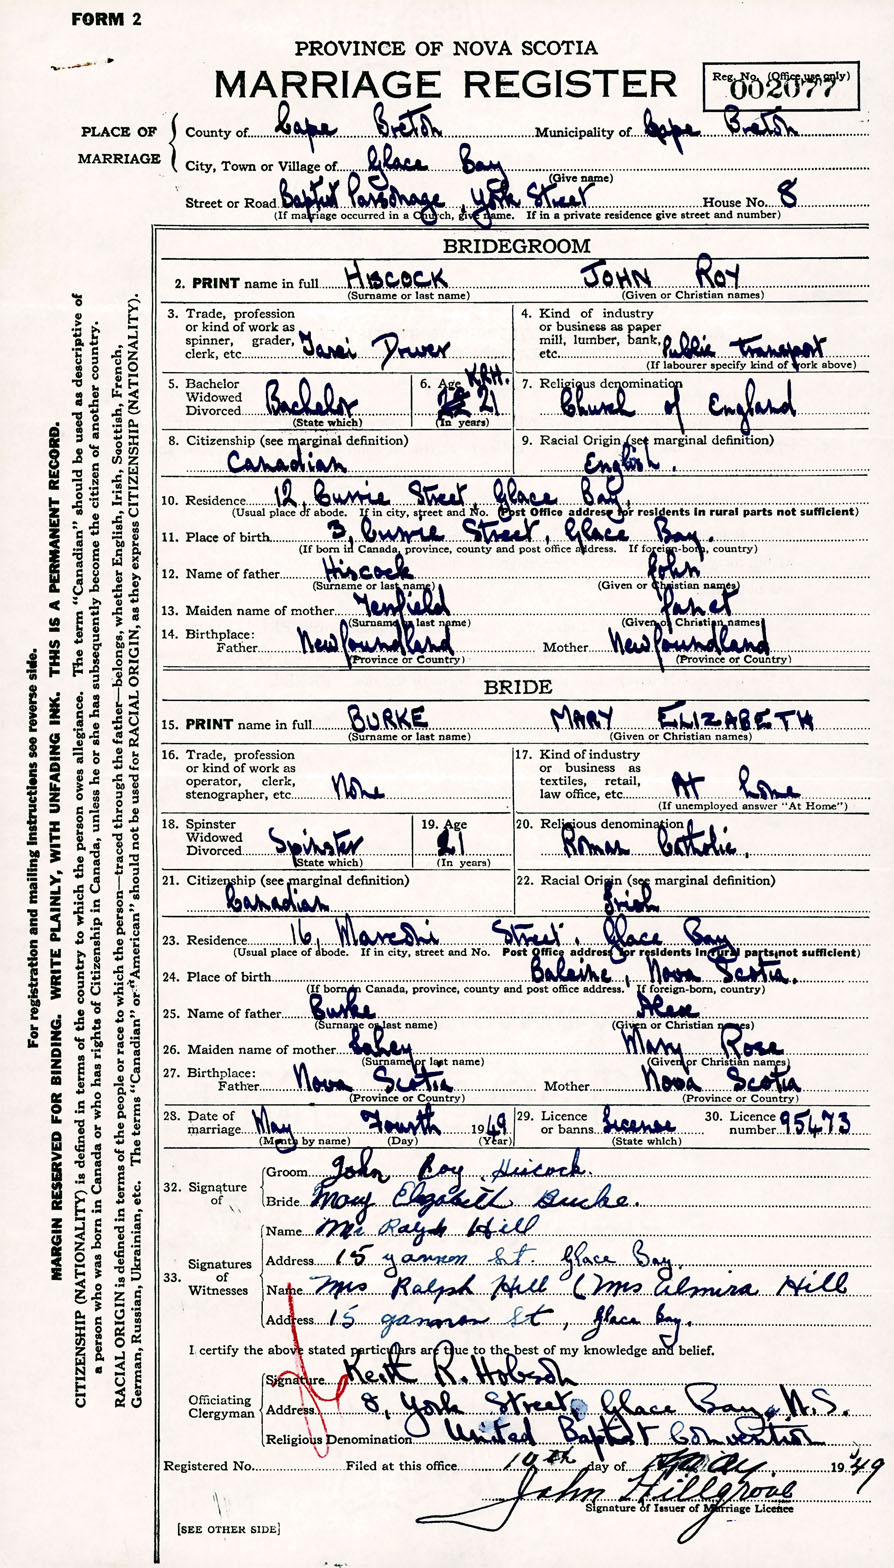 FORM 2
PROVINCE OF NOVA SCOTIA
MARRIAGE REGISTER
Reg. No. (Office use only)
002077
PLACE OF MARRIAGE
County of Cape Breton Municipality of Cape Breton
City, Town or Village of Glace Bay
(Give name)
Street or Road Baptist Parsonage, York Street House No. 8
(If marriage occurred in a Church, give name. If in a private residence give street and number)
BRIDEGROOM
2. PRINT name in full HISCOCK JOHN ROY
(Surname or last name) (Given or Christian names)
3. Trade, profession or kind of work as spinner, grader, clerk, etc. Taxi Driver
4. Kind of industry or business as paper mill, lumber, bank, etc. Public transport
(If labourer specify kind of work above)
5. Bachelor Widowed Divorced Bachelor
(State which)
6. Age K.R.H. 21
(In years)
7. Religious denomination Church of England
8. Citizenship (see marginal definition) Canadian
9. Racial Origin (see marginal definition) English.
10. Residence 12, Currie Street, Glace Bay,
(Usual place of abode. If in city, street and No. Post Office address for residents in rural parts not sufficient)
11. Place of birth 3, Currie Street, Glace Bay.
(If born in Canada, province, county and post office address. If foreign-born, country)
12. Name of father Hiscock John
(Surname or last name) (Given or Christian names)
13. Maiden name of mother Janet
(Surname or last name) (Given or Christian names)
14. Birthplace: Father Newfoundland Mother Newfoundland
(Province or Country) (Province or Country)
BRIDE
15. PRINT name in full BURKE MARY ELIZABETH
(Surname or last name) (Given or Christian names)
16. Trade, profession or kind of work as operator, clerk, stenographer, etc. None
17. Kind of industry or business as textiles, retail, law office, etc. At home
(If unemployed answer "At Home")
18. Spinster Widowed Divorced Spinster
(State which)
19. Age 21
(In years)
20. Religious denomination Roman Catholic.
21. Citizenship (see marginal definition) Canadian
22. Racial Origin (see marginal definition) Irish
23. Residence 16, Marconi Street, Glace Bay
(Usual place of abode. If in city, street and No. Post Office address for residents in rural parts not sufficient)
24. Place of birth Baleine, Nova Scotia.
(If born in Canada, province, county and post office address. If foreign-born, country)
25. Name of father Burke Alex
(Surname or last name) (Given or Christian names)
26. Maiden name of mother Lahey Mary Rose
(Surname or last name) (Given or Christian names)
27. Birthplace: Father Nova Scotia Mother Nova Scotia
(Province or Country) (Province or Country)
28. Date of marriage May Fourth 1949
(Month by name) (Day) (Year)
29. Licence or banns License
(State which)
30. Licence number 95473
32. Signature of
Groom John Roy Hiscock.
Bride Mary Elizabeth Burke.
33. Signatures of Witnesses
Name Mr Ralph Hill
Address 15 St. Glace Bay.
Name Mrs Ralph Hill (Mrs Elmira Hill
Address 15 St, Glace Bay.
I certify the above stated particulars are true to the best of my knowledge and belief.
Officiating Clergyman
Signature Keith R. Hobson
Address 8, York Street, Glace Bay, N.S.
Religious Denomination United Baptist Convention
Registered No. Filed at this office 10th day of May. 1949
John Hillgrove
Signature of Issuer of Marriage Licence
[SEE OTHER SIDE]
For registration and mailing instructions see reverse side.
MARGIN RESERVED FOR BINDING. WRITE PLAINLY, WITH UNFADING INK. THIS IS A PERMANENT RECORD.
CITIZENSHIP (NATIONALITY) is defined in terms of the country to which the person owes allegiance. The term "Canadian" should be used as descriptive of
a person who was born in Canada or who has rights of Citizenship in Canada, unless he or she has subsequently become the citizen of another country.
RACIAL ORIGIN is defined in terms of the people or race to which the person—traced through the father—belongs, whether English, Irish, Scottish, French,
German, Russian, Ukrainian, etc. The terms "Canadian" or "American" should not be used for RACIAL ORIGIN, as they express CITIZENSHIP (NATIONALITY).